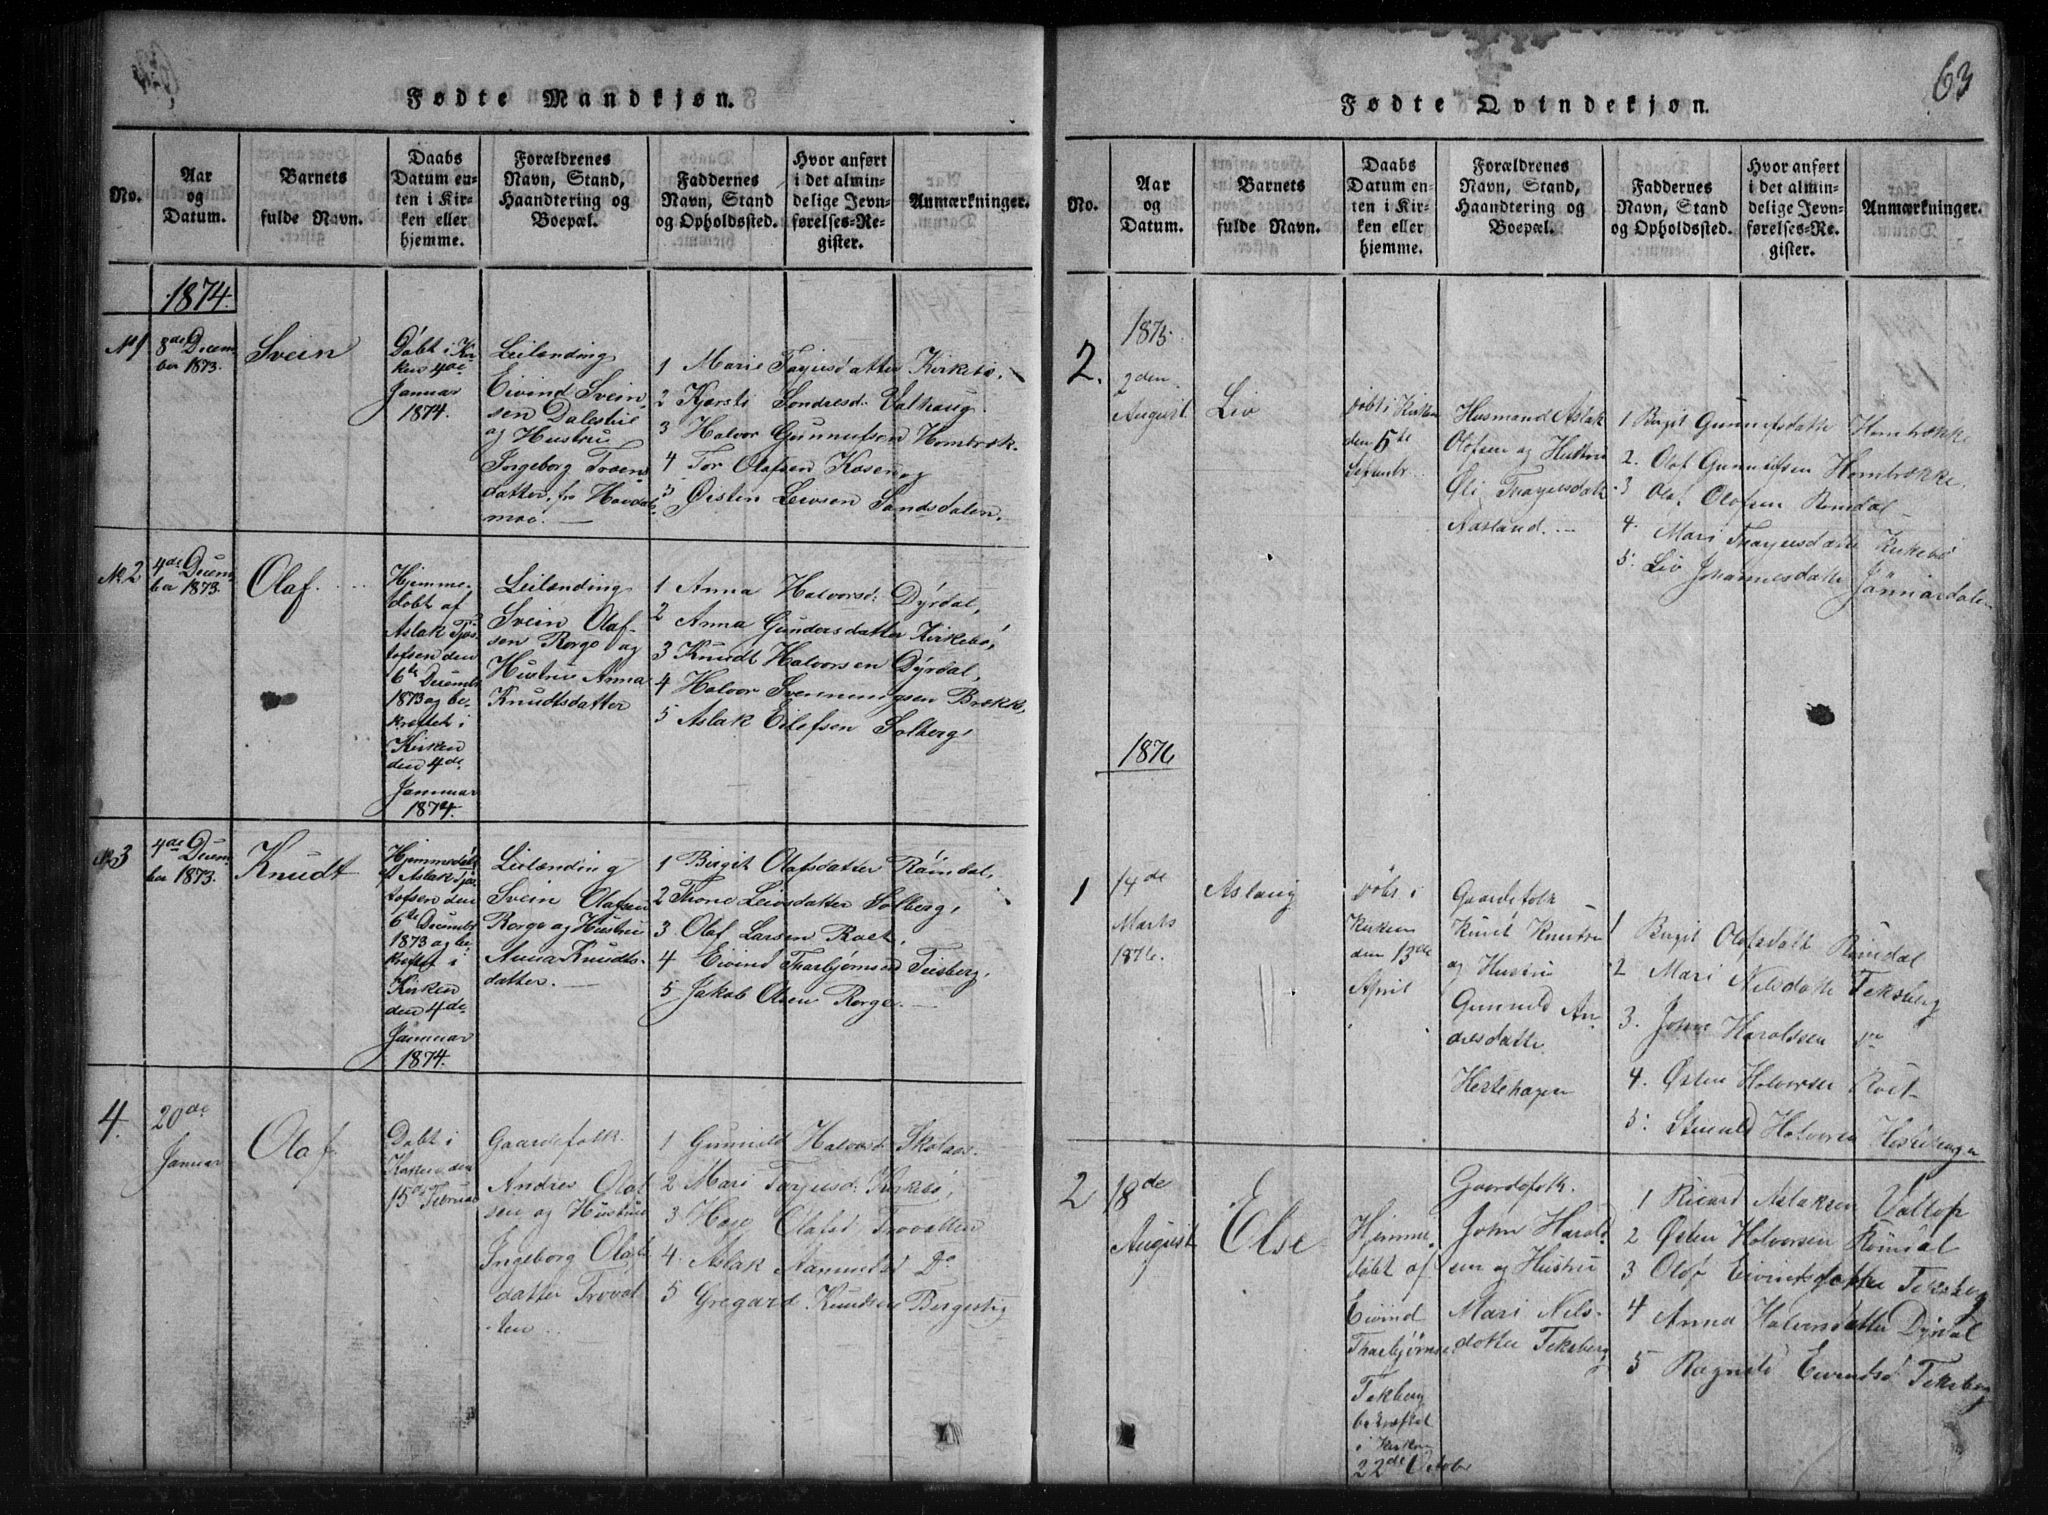 Fødte Mandkjøn.
No.
Aar
og
Datum.
Barnets
fulde Navn.
Daabs
Datum en-
ten i Kir-
ken eller
hjemme.
Forældrenes
Navn, Stand,
Haandtering og
Boepæl.
Faddernes
Navn, Stand
og Opholdssted.
Hvor anført
i det almin-
delige Jevn-
førelses-Re-
gister.
Anmærkninger.
1874.
№ 1
8de Decem-
ber 1873.
Svein
Döbt i Kir-
kens 4de
Januar
1874.
Leilænding
Eivind Svein-
sen Dalestiel
og Hustru
Ingeborg
datter, fra
moe.
1 Marie Tarjesdatter Kirkebö.
2 Kjersti Sondresd. Valhaug.
3 Halvor Gunnufsen Hombræk.
4 Tor Olafsen Kasen og
5 Östen Levsen Sandsdalen.
№ 2
4de Decem-
ber 1873.
Olaf.
Hjemme-
döbt af
Aslak Tjos
tofsen den
6te Decembr
1873 og be-
kræftet i
Kirken
den 4de
Januar
1874.
Leilænding
Svein Olaf-
sen Rorge og
Hustru Anna
Knudtsdatter
1 Anna Halvorsd: Dyrdal,
2 Anna Gundersdatter Kirkebö,
3 Knudt Halvorsen Dyrdal,
4 Halvor Svenningsen Brække,
5 Aslak Eilefsen Solberg,
№ 3
4de Decem-
ber 1873.
Knudt
Hjemmedöbt
af Aslak Tjos
tofsen den
6te Decembr
1873 og be-
kræftet i
Kirken
den 4de
Januar
1874.
Leilænding
Svein Olafsen
Rorge og Hustru
Anna Knudts-
datter.
1 Birgit Olafsdatter Römdal,
2 Thone Leivsdatter Solberg,
3 Olaf Larsen Roet,
4 Eivind Tharbjörnsen Teksberg,
5 Jakob Olsen Rorge.
4.
20de
Januar
Olaf
Döbt i
den
15de Februar
Gaardefolk
Andres Olaf
sen og Hustru
Ingeborg Olafs
datter Trovat
ten
1 Gunuld Halvorsd Skotaas
2 Mari Tarjesd: Kirkebö,
3 Hæge Olafsd Trovatten
4. Aslak Aanundsd Do
5 Gregard Knudsen Bergestig
63
Fødte Qvindekjøn.
No.
Aar
og
Datum.
Barnets
fulde Navn.
Daabs
Datum en-
ten i Kir-
ken eller
hjemme.
Forældrenes
Navn, Stand,
Haandtering og
Boepæl.
Faddernes
Navn, Stand
og Opholdssted.
Hvor anført
i det almin-
delige Jevn-
førelses-Re-
gister.
Anmærkninger.
1875.
2.
2den
August
Liv
döbt i Kirken
den 5te
Septembr
Husmand Aslak
Olofsen og Hustru
Öli Targusdatter
Aasland.
1 Birgit Gunnufsdatter Hombrække
2. Olof Gunnufsen Hombrække
3 Olaf Olofsen Romdal
4. Mari Targusdatter Kirkebö
5. Liv Johannesdatter Jönnardalen
1876
1
14de
Marts
1876.
Aslaug
döbt i
Kirken
den 13de
April
Gaardefolk
Knut Knutsen
og Hustru
Gunnuld An-
dresdatter
Hestehagen
1 Birgit Olofsdatt Römdal
2 Mari Nilsdatte Teksberg
3. John Haroldsen do
4. Östen Halvorsen Roet
5. Halvorsen Hestehagen
2
18de
August
Else
Hjemme
döbt af
Eivind
Tharbjörnsen
Tekberg
bekræftet
i Kirken
22de October
Gaardefolk
John Harold
sen og Hustru
Mari Nils-
dotter Teksberg
1 Ricard Aslaksen Valtop
2 Östen Halvorsen Römdal
3 Olof Eivindsdotter Teksberg
4 Anna Halvorsdatter Dyrdal
5 Ragnild Eivindsd Teksberg